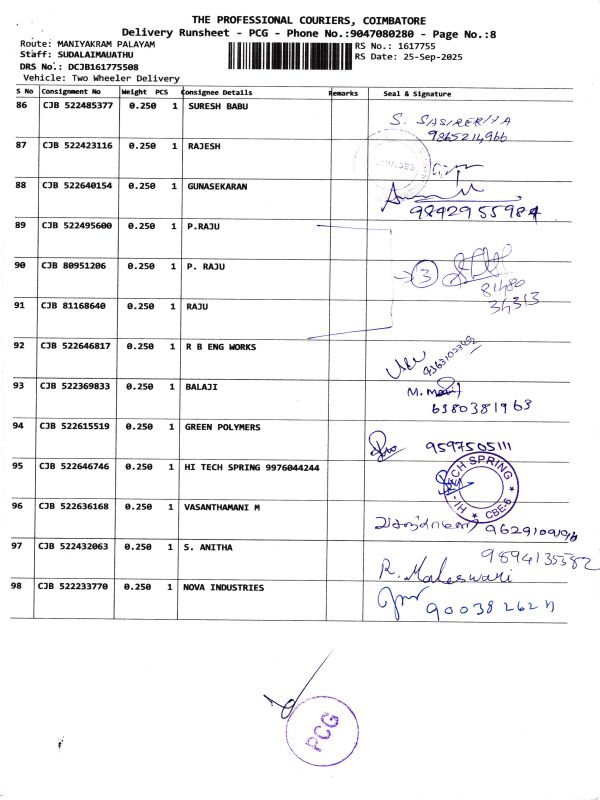 THE PROFESSIONAL COURIERS, COIMBATORE
Delivery Runsheet - PCG - Phone No.:9047080280 - Page No.:8
Route: MANIYAKRAM PALAYAM RS No.: 1617755
Staff: SUDALAIMAUATHU RS Date: 25-Sep-2025
DRS No.: DCJB161775508
Vehicle: Two Wheeler Delivery
S No Consignment No Weight PCS Consignee Details Remarks Seal & Signature
86 CJB 522485377 0.250 1 SURESH BABU
S. SASIREKHA
9865214966
87 CJB 522423116 0.250 1 RAJESH
88 CJB 522640154 0.250 1 GUNASEKARAN
9842955984
89 CJB 522495600 0.250 1 P.RAJU
90 CJB 80951206 0.250 1 P. RAJU
3
81480
34313
91 CJB 81168640 0.250 1 RAJU
92 CJB 522646817 0.250 1 R B ENG WORKS
93 CJB 522369833 0.250 1 BALAJI
M. Mani
6380381963
94 CJB 522615519 0.250 1 GREEN POLYMERS
9597505111
95 CJB 522646746 0.250 1 HI TECH SPRING 9976044244
HI-TECH SPRING
★ CBE-6 ★
96 CJB 522636168 0.250 1 VASANTHAMANI M
வசந்தாமணி
97 CJB 522432063 0.250 1 S. ANITHA
9894135382
R. Maheswari
98 CJB 522233770 0.250 1 NOVA INDUSTRIES
PCG